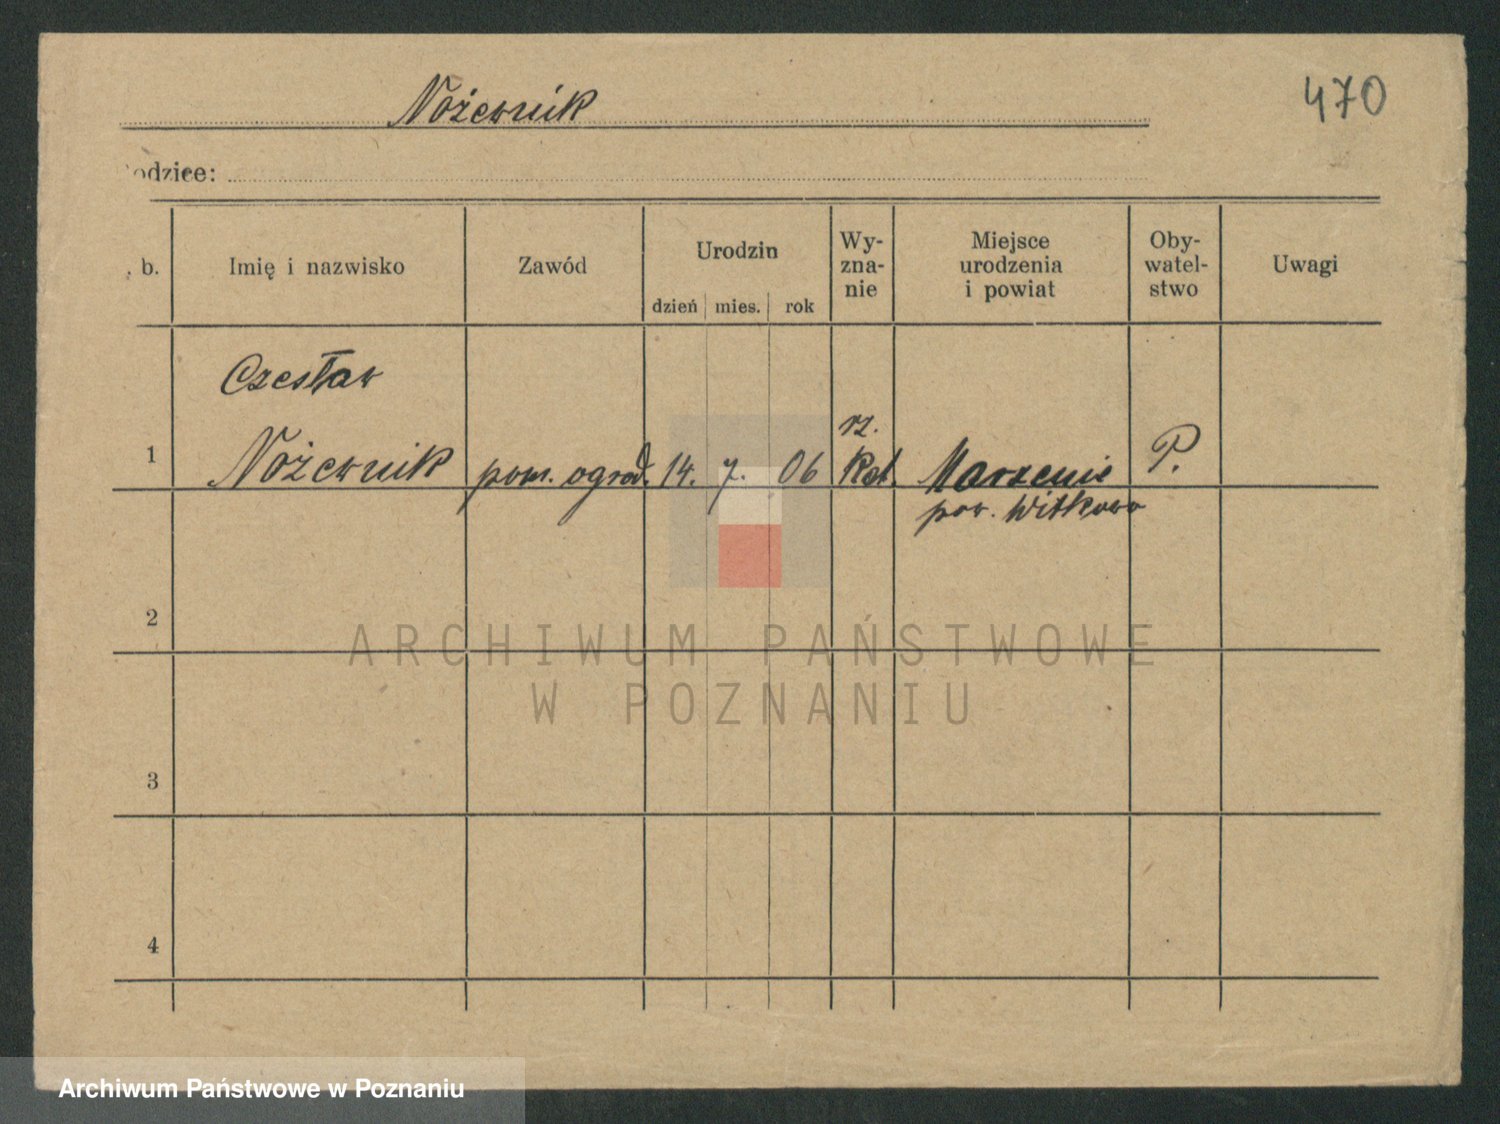 Nożewnik
470
odzice:
b.
Imię i nazwisko
Zawód
Urodzin
dzień mies. rok
Wy-
zna-
nie
Miejsce
urodzenia
i powiat
Oby-
watel-
stwo
Uwagi
Czesław
rz.
1 Nożewnik pom. ogrod. 14. 7. 06 kat. Marzenie P.
pow. Witkowo
2
3
4
ARCHIWUM PAŃSTWOWE
W POZNANIU
Archiwum Państwowe w Poznaniu